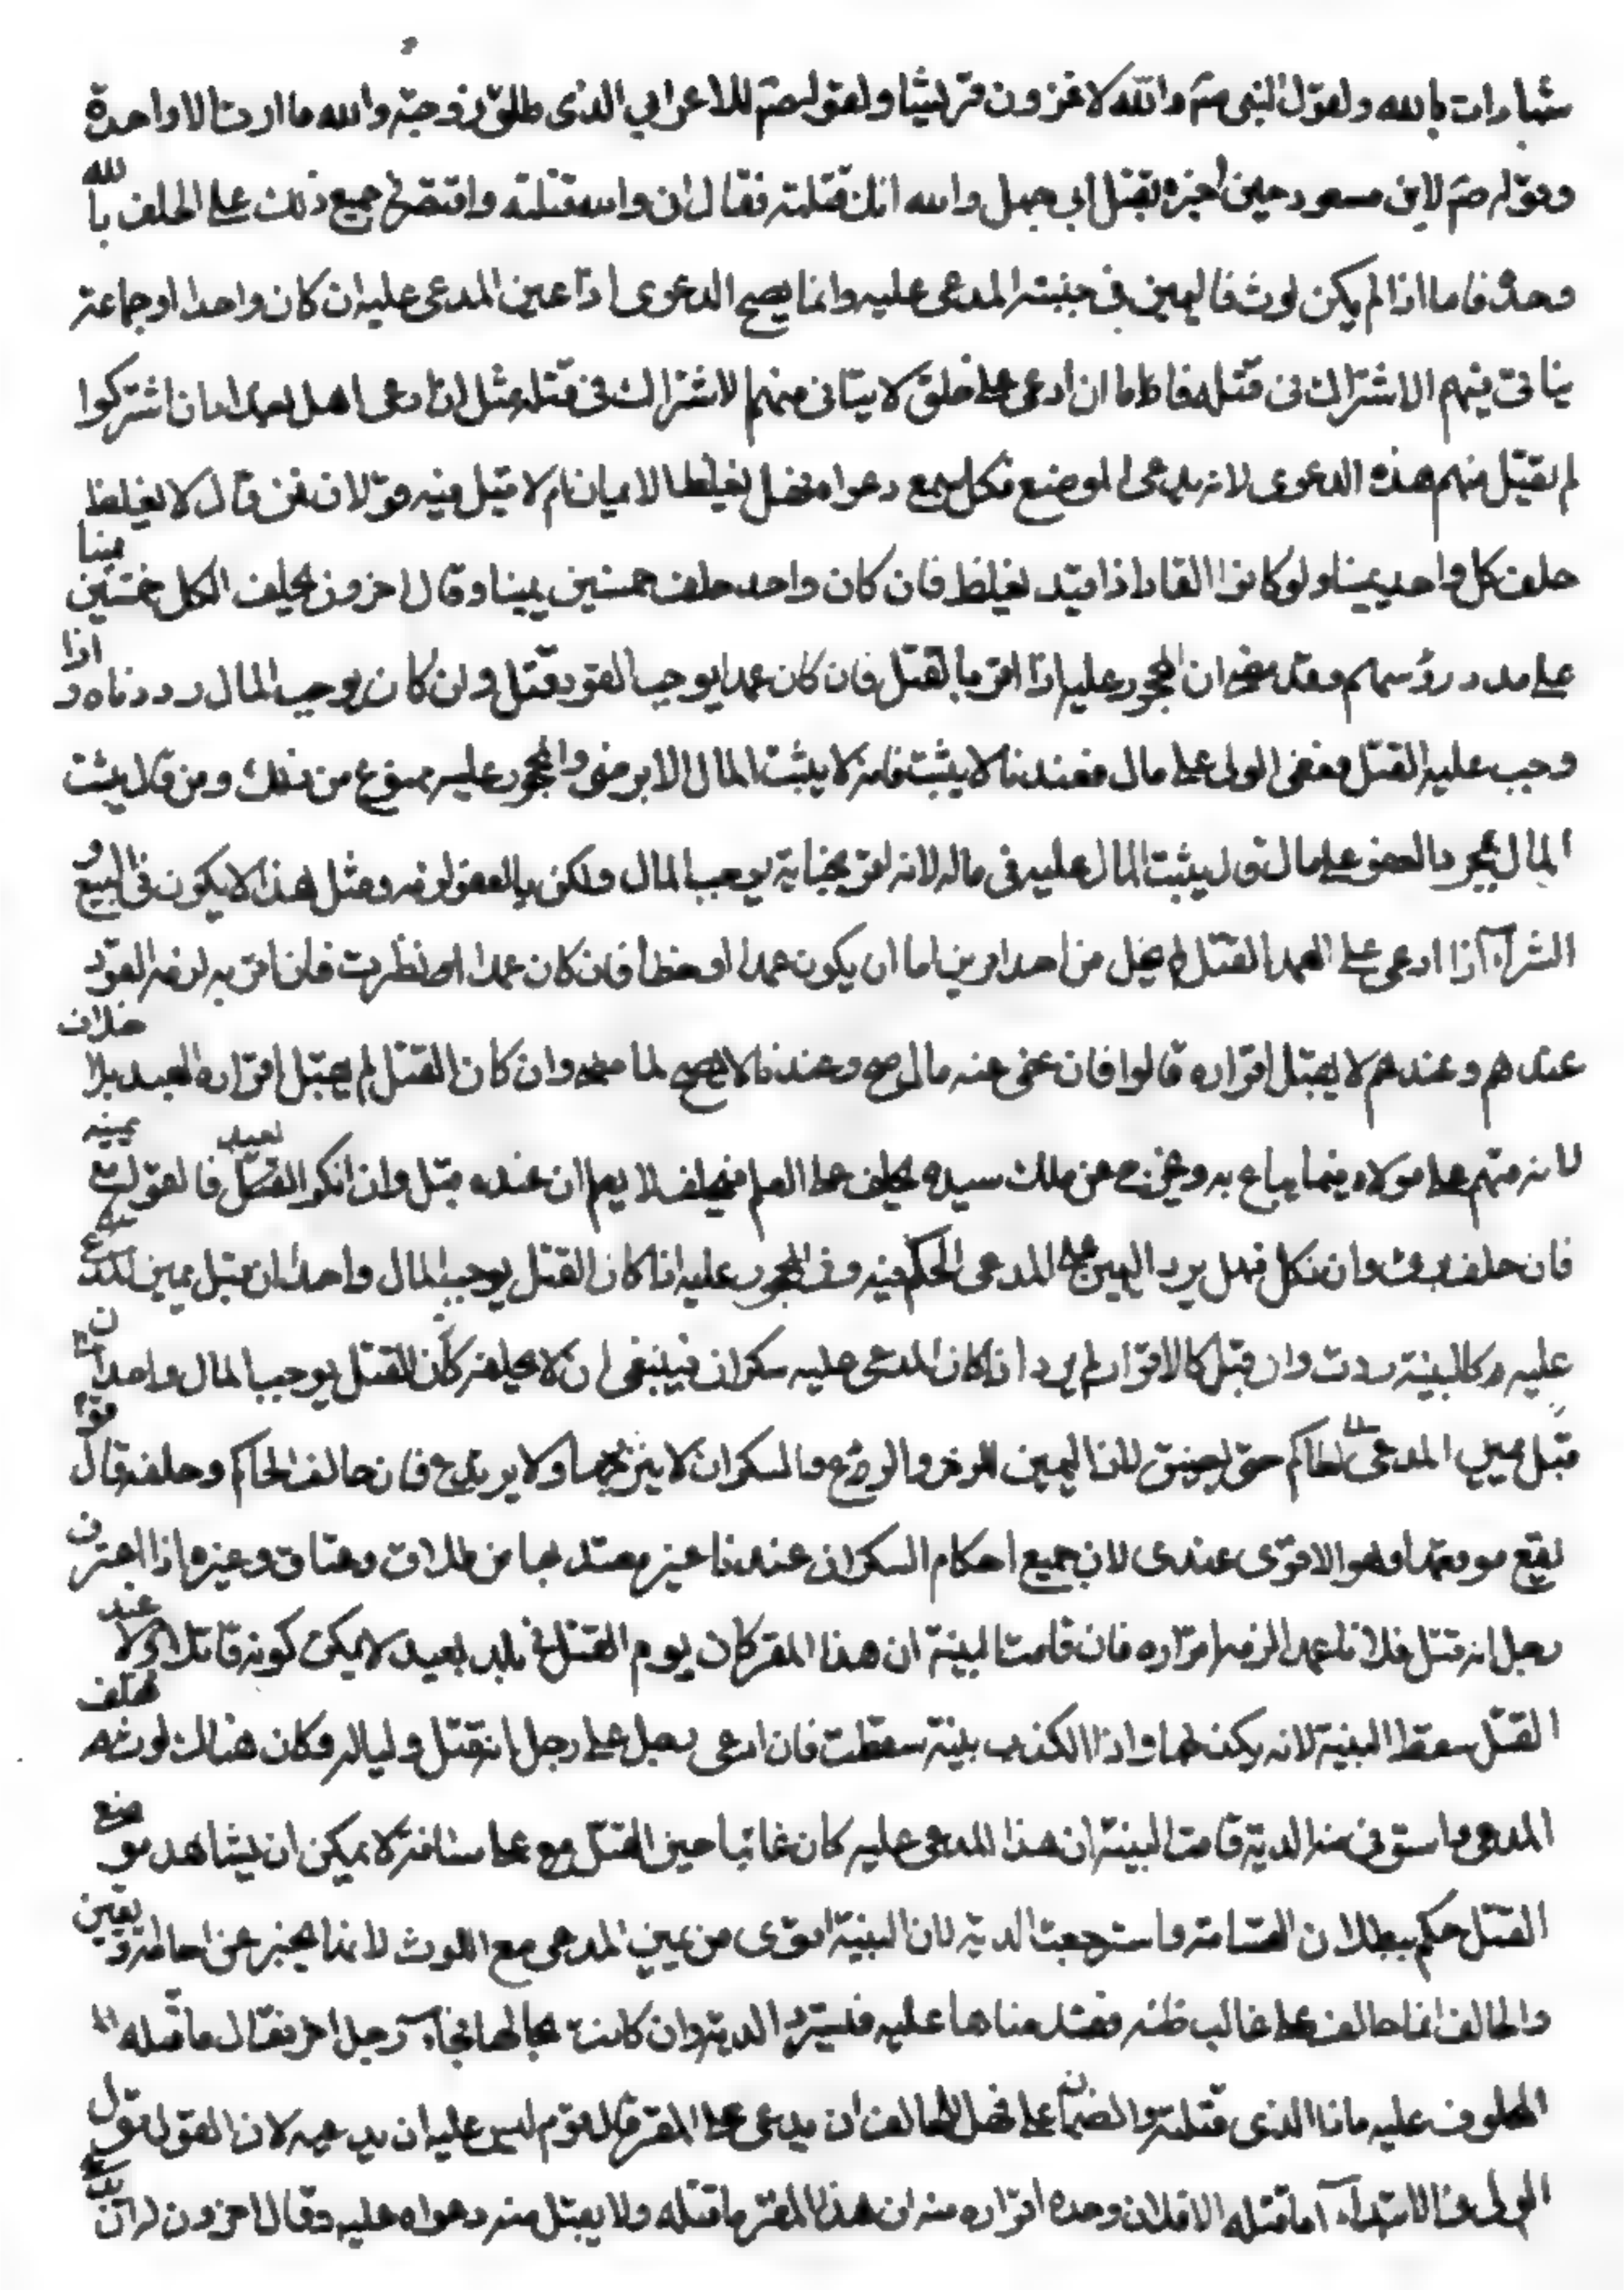 شهادات بالله ولقول النبي صم والله لاغزون قريشا ولقوله صم للاعرابي الذي طلق زوجته والله ما اردت الا واحدة
وقوله صم لابن مسعود حين اخبره بقتل ابي جهل والله انك قتلته فقال ان والله قتلته واقتصر في جميع ذلك على الحلف بالله
وحده فاما اذا لم يكن لوث فاليمين في جنبته المدعى عليه وانما يصح الدعوى اذا عين المدعى عليه ان كان واحدا او جماعة
يتاتى منهم الاشتراك في قتله فاما ان ادعى على خلق لا يتاتى منهم الاشتراك في قتله مثل ان ادعى اهل بغداد ان اشتركوا
لم تقبل منهم هذه الدعوى لانه يدعى الموضع فكل يسمع دعواه فصل تغليظ الايمان ام لا قيل فيه قولان فمن قال لا يغلظ
حلف كل واحد يمينا ولو كانوا الفا واذا قيد تغليظ فان كان واحد حلف خمسين يمينا وقال اخرون يحلف الكل خمسين يمينا
على عدد رؤسهم وقد مضى ان المحجور عليه اذا اقر بالقتل فان كان عمدا يوجب القود قتل وان كان يوجب المال رددناه و اذا
وجب عليه القتل فعفى الولى على مال فعندنا لا يثبت فانه لا يثبت المال الا برضى والمحجور عليه ممنوع من ذلك ومن قال يثبت
المال بمجرد العفو على مال قال يثبت المال عليه في ماله لانه اقر بجناية يوجب المال ولكن بالعفو لزمه ومثل هذا لا يكون في البيع و
الشراء اذا ادعى على العبد القتل لم يخل من احد امرين اما ان يكون عمدا او خطأ فان كان عمدا نظرت فان اقر به لزمه القود
عندهم وعندهم لا يقبل اقراره قالوا فان عفى عنه مال صح وعندنا لا يصح لما مضى وان كان القتل لم يقبل اقراره العبد بلا خلاف
لانه متهم على مولاه فيما يباع به ويخرج عن ملك سيده يحلف على العلم فيحلف لا يعلم ان عبده قتل وان انكر العبد القتل فالقول مع يمينه
فان حلف برئ وان نكل فهل يرد اليمين على المدعى الحكم فيه وفي المحجور عليه اذا كان القتل يوجب المال واحد ان قبل يمين المدعى
عليه كالبينة ردت وان قبل كالاقرار لم يرد اذا كان المدعى عليه سكران فينبغي ان لا يحلفه كان القتل يوجب المال واحدا
قبل يمين المدعى الحاكم حتى يفيق لان اليمين للزجر والردع والسكران لا ينزجر بها ولا يرتدع فان خالف الحاكم وحلفه قال قوم
تقع موقعها وهو الاقوى عندى لان جميع احكام السكران عندنا غير معتد بها من طلاق وعتاق وغيره اذا اعترف
رجل انه قتل فلانا عمدا لزمه اقراره فان قامت البينة ان هذا المقر كان يوم القتل في بلد بعيد لا يمكن كونه قاتلا له عند
القتل سقط البينة لانه مكذب لها واذا الكذب بينة سقطت فان ادعى رجل على رجل انه قتل وليا له وكان هناك لوث فحلف
المدعى واستوفى منه الدية قامت البينة ان هذا المدعى عليه كان غائبا حين القتل على مسافة لا يمكن ان يشاهد موضع
القتل حكم ببطلان القسامة واسترجعت الدية لان البينة اقوى من يمين المدعى مع اللوث لانها يخبر عن احاطة ويقين
والحالف انما حالف على غالب ظنه فقدمناها عليه فيسترد الدية وان كانت بحالها فجاء رجل اخر فقال ما قتله
المحلوف عليه وانا الذى قتلته والضمان على فهل للحالف ان يدعى على المقر قال قوم ليس عليه ان يدعيه لان القول قول
الولى في الابتداء ما قتله الا فلان وحده اقراره منه ان هذا المقر ما قتله ولا يقبل منه دعواه عليه وقال اخرون له ان